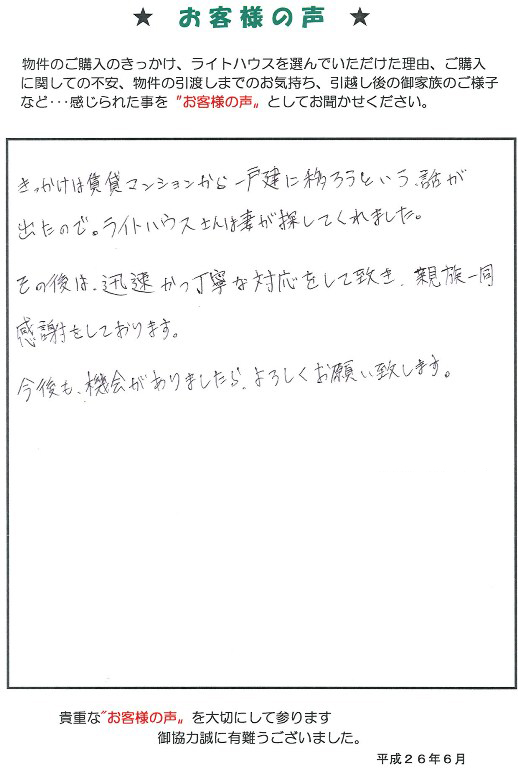 ★ お客様の声 ★
物件のご購入のきっかけ、ライトハウスを選んでいただけた理由、ご購入
に関しての不安、物件の引渡しまでのお気持ち、引越し後の御家族のご様子
など･･･感じられた事を〝お客様の声〟としてお聞かせください。
きっかけは賃貸マンションから一戸建に移ろうという、話が
出たので。ライトハウスさんは妻が探してくれました。
その後は、迅速かつ丁寧な対応をして致き、親族一同
感謝をしております。
今後も、機会がありましたら、よろしくお願い致します。
貴重な〝お客様の声〟を大切にして参ります
御協力誠に有難うございました。
平成２６年６月